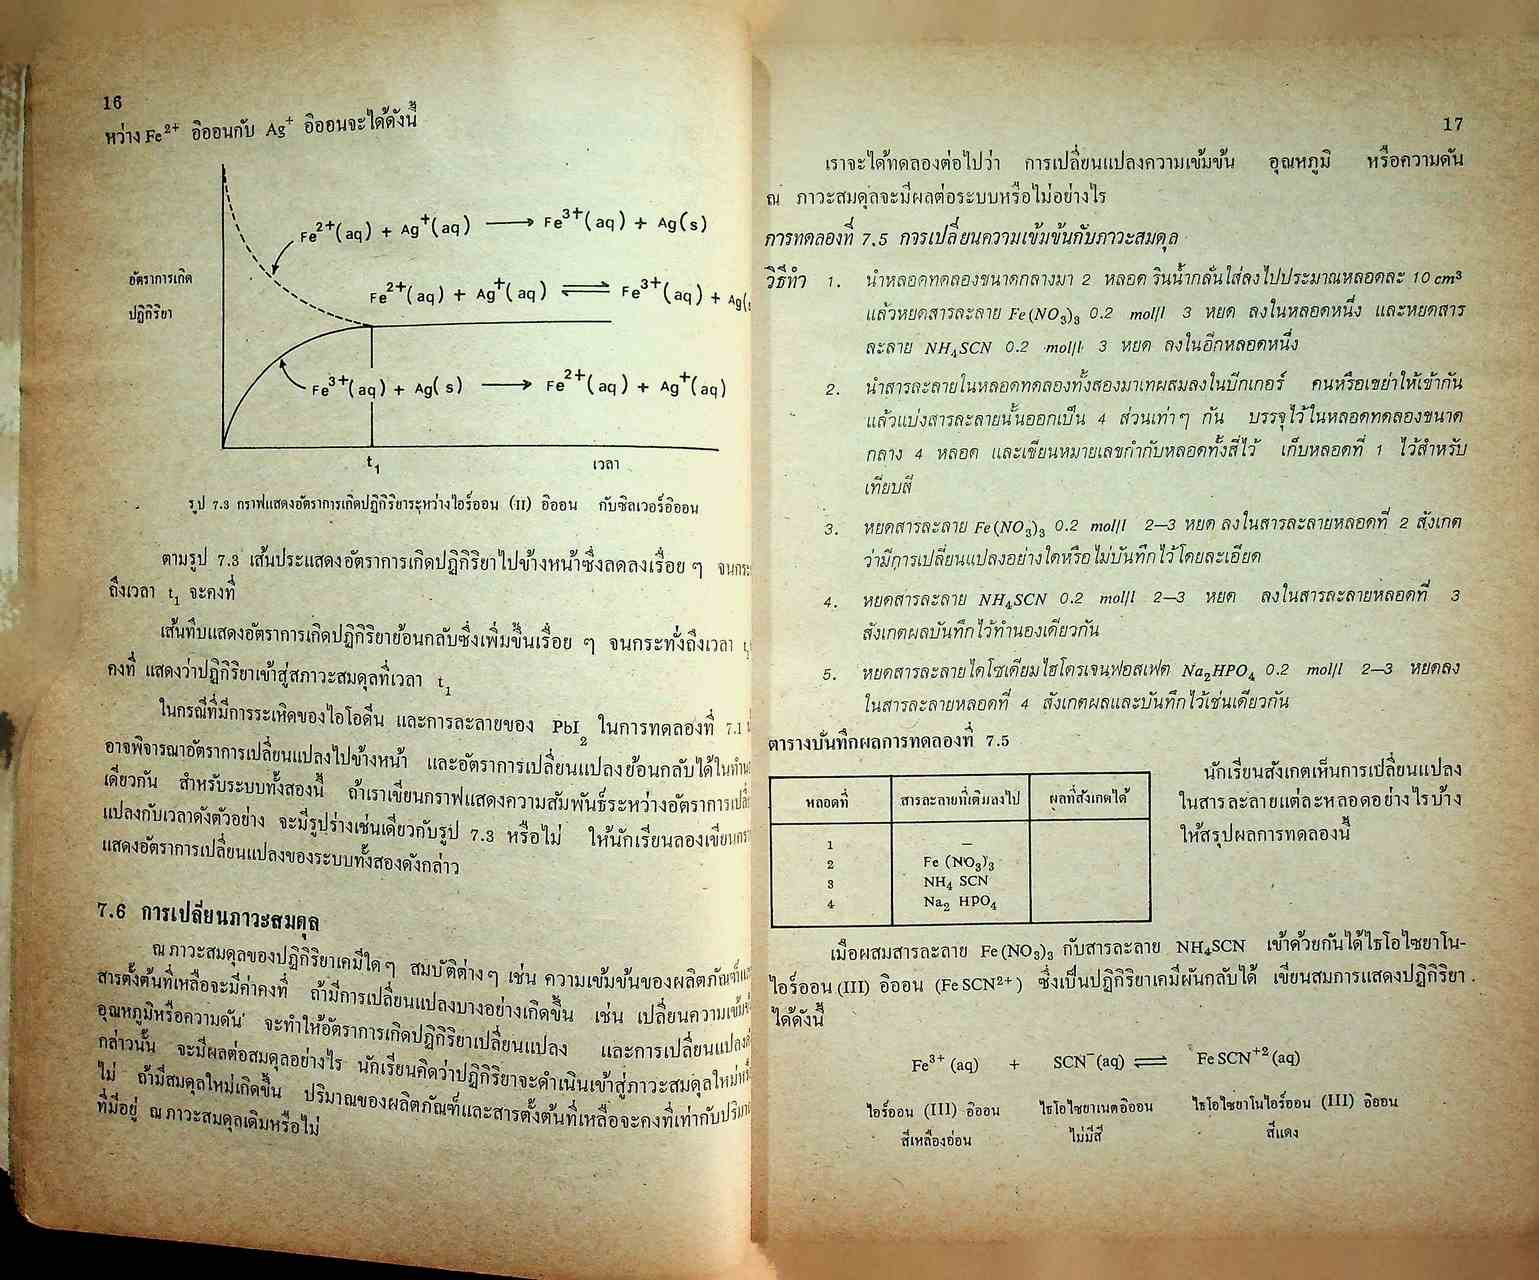 16
หว่าง Fe²⁺ อิออนกับ Ag⁺ อิออนจะได้ดังนี้
Fe²⁺(aq) + Ag⁺(aq) ⟶ Fe³⁺(aq) + Ag(s)
อัตราการเกิด
ปฏิกิริยา
Fe²⁺(aq) + Ag⁺(aq) ⇌ Fe³⁺(aq) + Ag(
Fe³⁺(aq) + Ag(s) ⟶ Fe²⁺(aq) + Ag⁺(aq)
t₁ เวลา
รูป 7.3 กราฟแสดงอัตราการเกิดปฏิกิริยาระหว่างไอร์ออน (II) อิออน กับซิลเวอร์อิออน
ตามรูป 7.3 เส้นประแสดงอัตราการเกิดปฏิกิริยาไปข้างหน้าซึ่งลดลงเรื่อย ๆ จนกระ
ถึงเวลา t₁ จะคงที่
เส้นทึบแสดงอัตราการเกิดปฏิกิริยาย้อนกลับซึ่งเพิ่มขึ้นเรื่อย ๆ จนกระทั่งถึงเวลา t₁
คงที่ แสดงว่าปฏิกิริยาเข้าสู่สภาวะสมดุลที่เวลา t₁
ในกรณีที่มีการระเหิดของไอโอดีน และการละลายของ PbI₂ ในการทดลองที่ 7.1
อาจพิจารณาอัตราการเปลี่ยนแปลงไปข้างหน้า และอัตราการเปลี่ยนแปลงย้อนกลับได้ในทำน
เดียวกัน สำหรับระบบทั้งสองนี้ ถ้าเราเขียนกราฟแสดงความสัมพันธ์ระหว่างอัตราการเปลี่
แปลงกับเวลาดังตัวอย่าง จะมีรูปร่างเช่นเดียวกับรูป 7.3 หรือไม่ ให้นักเรียนลองเขียนกรา
แสดงอัตราการเปลี่ยนแปลงของระบบทั้งสองดังกล่าว
7.6 การเปลี่ยนภาวะสมดุล
ณ ภาวะสมดุลของปฏิกิริยาเคมีใด ๆ สมบัติต่าง ๆ เช่น ความเข้มข้นของผลิตภัณฑ์และ
สารตั้งต้นที่เหลือจะมีค่าคงที่ ถ้ามีการเปลี่ยนแปลงบางอย่างเกิดขึ้น เช่น เปลี่ยนความเข้มข้
อุณหภูมิหรือความดัน จะทำให้อัตราการเกิดปฏิกิริยาเปลี่ยนแปลง และการเปลี่ยนแปลงดั
กล่าวนั้น จะมีผลต่อสมดุลอย่างไร นักเรียนคิดว่าปฏิกิริยาจะดำเนินเข้าสู่ภาวะสมดุลใหม่หรื
ไม่ ถ้ามีสมดุลใหม่เกิดขึ้น ปริมาณของผลิตภัณฑ์และสารตั้งต้นที่เหลือจะคงที่เท่ากับปริมา
ที่มีอยู่ ณ ภาวะสมดุลเดิมหรือไม่
17
เราจะได้ทดลองต่อไปว่า การเปลี่ยนแปลงความเข้มข้น อุณหภูมิ หรือความดัน
ณ ภาวะสมดุลจะมีผลต่อระบบหรือไม่อย่างไร
การทดลองที่ 7.5 การเปลี่ยนความเข้มข้นกับภาวะสมดุล
วิธีทำ 1. นำหลอดทดลองขนาดกลางมา 2 หลอด รินน้ำกลั่นใส่ลงไปประมาณหลอดละ 10 cm³
แล้วหยดสารละลาย Fe(NO₃)₃ 0.2 mol/l 3 หยด ลงในหลอดหนึ่ง และหยดสาร
ละลาย NH₄SCN 0.2 mol/l 3 หยด ลงในอีกหลอดหนึ่ง
2. นำสารละลายในหลอดทดลองทั้งสองมาเทผสมลงในบีกเกอร์ คนหรือเขย่าให้เข้ากัน
แล้วแบ่งสารละลายนั้นออกเป็น 4 ส่วนเท่าๆ กัน บรรจุไว้ในหลอดทดลองขนาด
กลาง 4 หลอด และเขียนหมายเลขกำกับหลอดทั้งสี่ไว้ เก็บหลอดที่ 1 ไว้สำหรับ
เทียบสี
3. หยดสารละลาย Fe(NO₃)₃ 0.2 mol/l 2—3 หยด ลงในสารละลายหลอดที่ 2 สังเกต
ว่ามีการเปลี่ยนแปลงอย่างใดหรือไม่บันทึกไว้โดยละเอียด
4. หยดสารละลาย NH₄SCN 0.2 mol/l 2—3 หยด ลงในสารละลายหลอดที่ 3
สังเกตผลบันทึกไว้ทำนองเดียวกัน
5. หยดสารละลายไดโซเดียมไฮโดรเจนฟอสเฟต Na₂HPO₄ 0.2 mol/l 2—3 หยดลง
ในสารละลายหลอดที่ 4 สังเกตผลและบันทึกไว้เช่นเดียวกัน
ตารางบันทึกผลการทดลองที่ 7.5
หลอดที่ สารละลายที่เติมลงไป ผลที่สังเกตได้
1 —
2 Fe (NO₃)₃
3 NH₄ SCN
4 Na₂ HPO₄
นักเรียนสังเกตเห็นการเปลี่ยนแปลง
ในสารละลายแต่ละหลอดอย่างไรบ้าง
ให้สรุปผลการทดลองนี้
เมื่อผสมสารละลาย Fe(NO₃)₃ กับสารละลาย NH₄SCN เข้าด้วยกันได้ไธโอไซยาโน-
ไอร์ออน (III) อิออน (FeSCN²⁺) ซึ่งเป็นปฏิกิริยาเคมีผันกลับได้ เขียนสมการแสดงปฏิกิริยา
ได้ดังนี้
Fe³⁺ (aq) + SCN⁻(aq) ⇌ FeSCN⁺²(aq)
ไอร์ออน (III) อิออน ไธโอไซยาเนตอิออน ไธโอไซยาโนไอร์ออน (III) อิออน
สีเหลืองอ่อน ไม่มีสี สีแดง